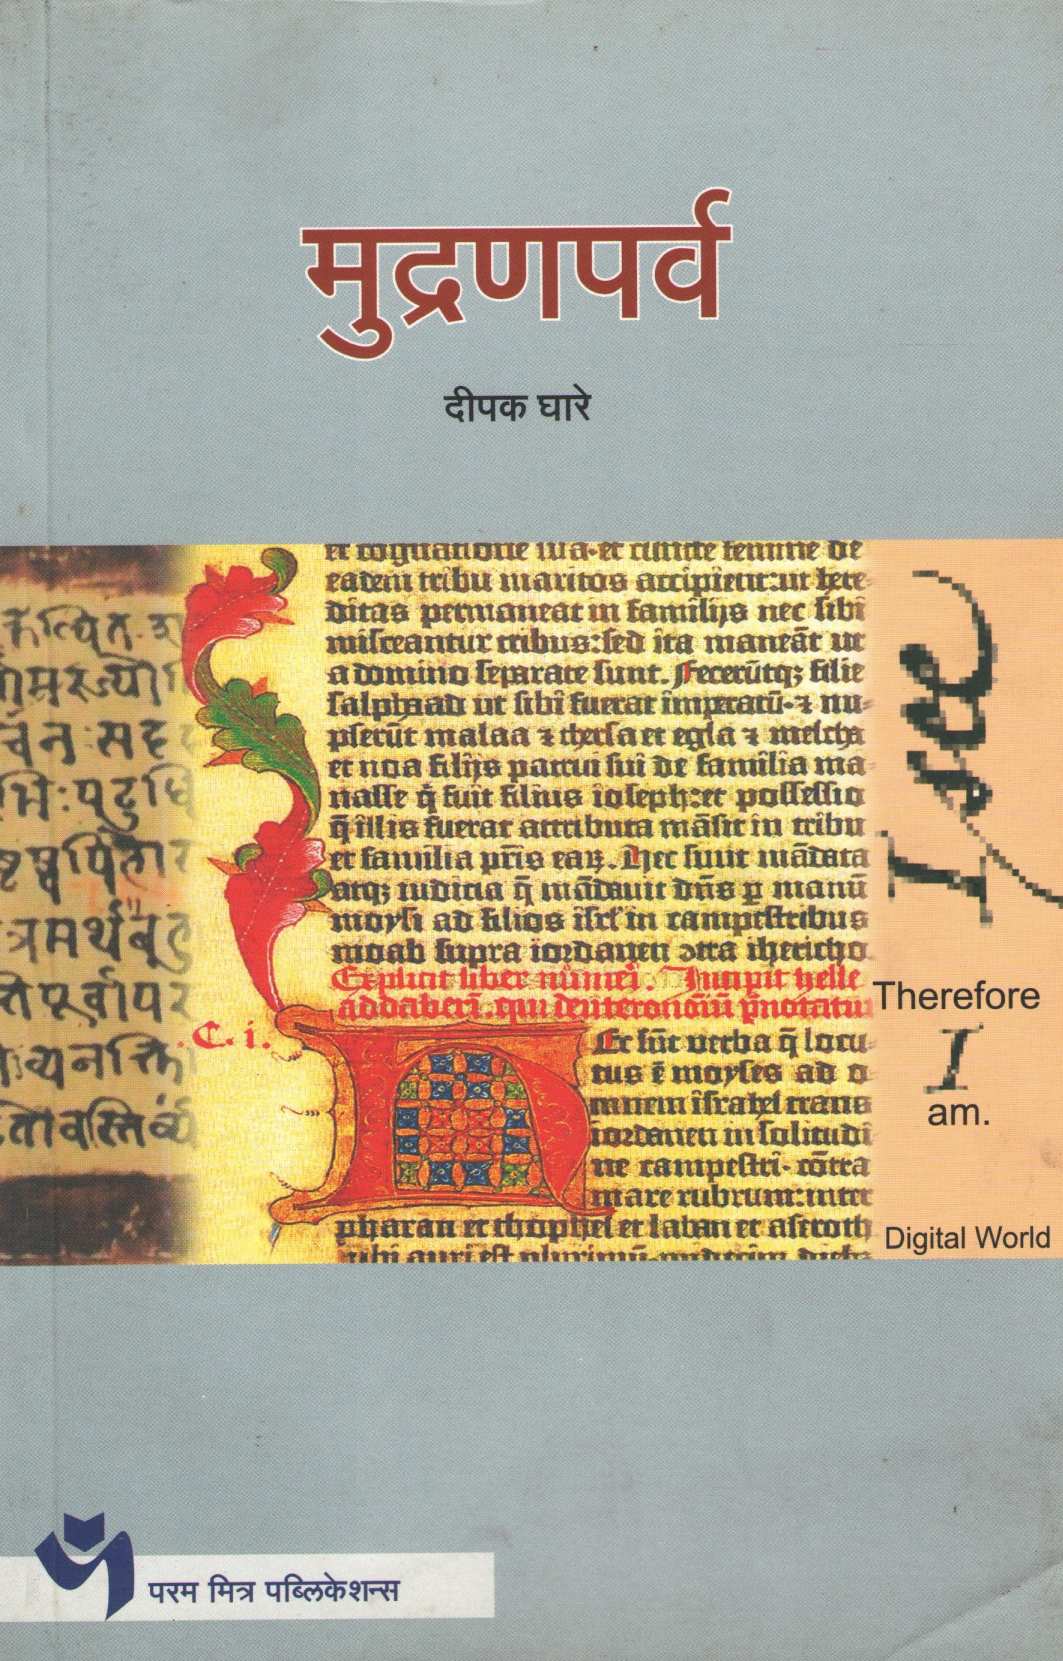 मुद्रणपर्व
दीपक घारे
et cognatione sua·et cuncte femine de
eadem tribu maritos accipient:ut here
ditas permaneat in familijs nec sibi
misceantur tribus:sed ita maneāt ut
a domino separate sunt. Fecerūtq; filie
salphaad ut sibi fuerat imperatū·⁊ nu
pserūt malaa ⁊ thersa et egla ⁊ melcha
et noa filijs patrui sui de familia ma
nasse q̄ fuit filius ioseph:et possessio
q̄ illis fuerat attributa māsit in tribu
et familia pr̄is eaꝝ. Hec sunt mādata
atq; iudicia q̄ mādauit dn̄s ꝑ manū
moysi ad filios isrl' in campestribus
moab supra iordanen ↄtra ihericho.
Explicit liber numeri. Incipit helle
addabarim. qui deuteronomiū p̄notatur
.C. i.
Ec sūt verba q̄ locu
tus ē moyses ad o
mnem israhel trans
iordanen in solitudi
ne campestri· cōtra
mare rubrum:inter
pharan et thophel et laban et aseroth
I see
Therefore
I
am.
Digital World
मर्थ
पूर्वापर
परम मित्र पब्लिकेशन्स